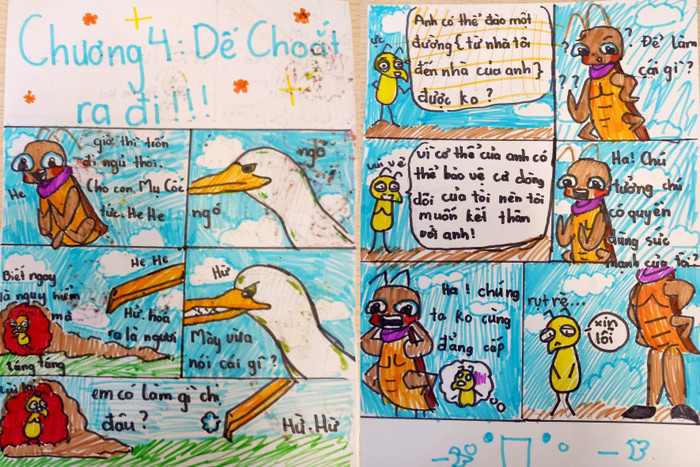 Chương 4: Dế Choắt
ra đi !!!
giờ thì tiến
đi ngủ thôi.
Cho con Mụ Cóc
tức. He He
He
ngó
ngó
Biết ngay
là nguy hiểm
mà
He He
Hử. hoá
ra là ngươi
lảng lảng
Hử
Mày vừa
nói cái gì?
em có làm gì chị
đâu?
Hử. Hử
Anh có thể đào một
đường {từ nhà tôi
đến nhà của anh}
được ko?
? ? ?
Để làm
cái gì?
vì cơ thể của anh có
thể bảo vệ cơ dòng
dõi của tôi nên tôi
muốn kết thân
với anh!
Ha! Chú
tưởng chú
có quyền
dùng sức
mạnh của tôi?
Ha! chúng
ta ko cùng
đẳng cấp
rụt rè...
xin
lỗi